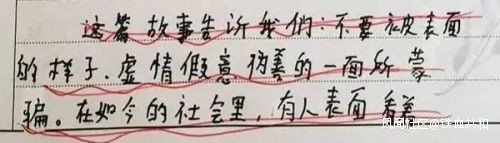 这篇故事告诉我们:不要被表面
的样子、虚情假意伪善的一面所蒙
骗。在如今的社会里,有人表面看着